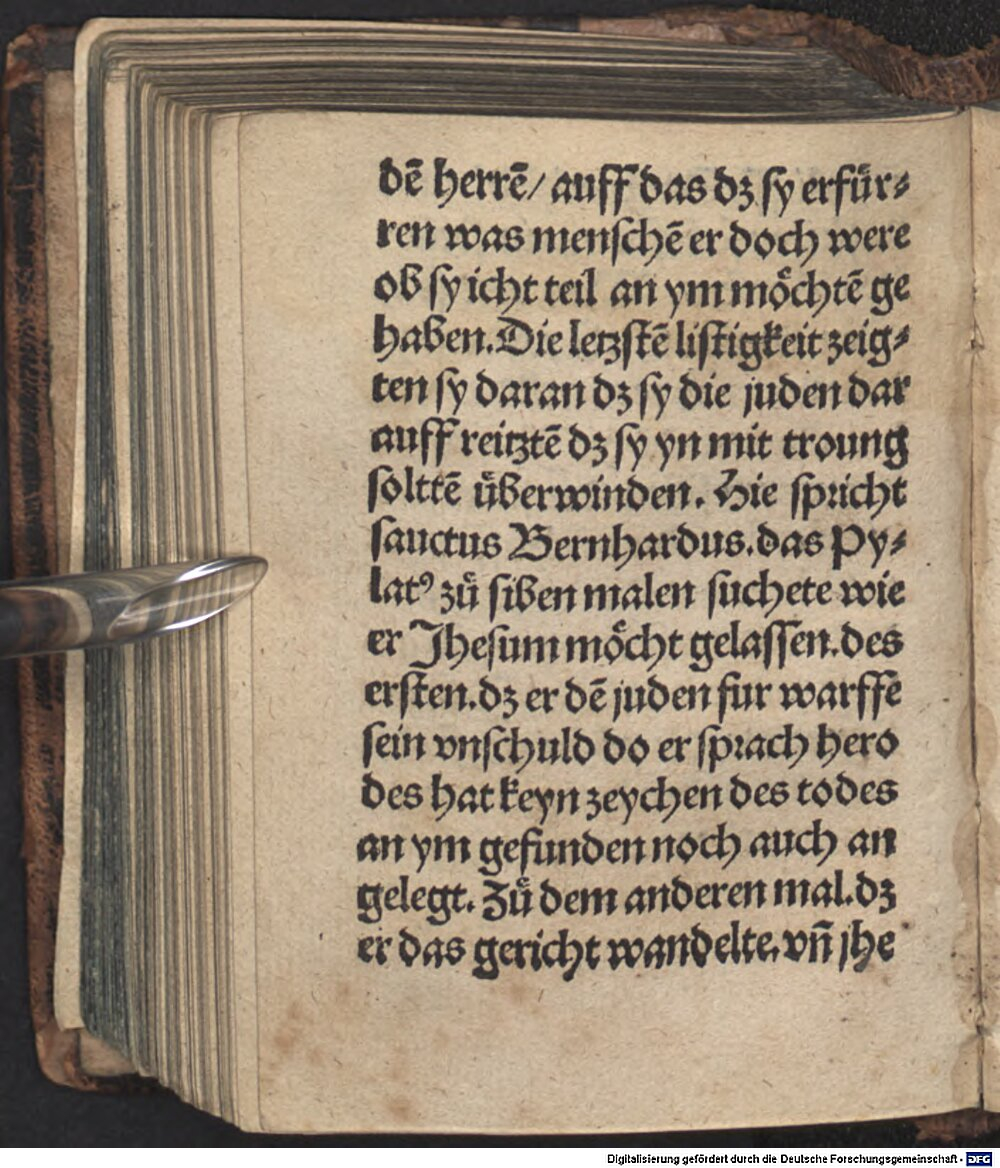 dē herrē/ auff das dz sy erfür⸗
ren was menschē er doch were
ob sy icht teil an ym möchtē ge
haben. Die letzstē listigkeit zeig⸗
ten sy daran dz sy die juden dar
auff reitztē dz sy yn mit troung
solttē uͤberwinden. Hie spricht
sanctus Bernhardus. das Py⸗
latꝰ zuͦ siben malen suchete wie
er Jhesum moͤcht gelassen. des
ersten. dz er dē juden fur warffe
sein vnschuld do er sprach hero
des hat keyn zeychen des todes
an ym gefunden noch auch an
gelegt. Zuͦ dem anderen mal. dz
er das gericht wandelte. vñ jhe
Digitalisierung gefördert durch die Deutsche Forschungsgemeinschaft - DFG